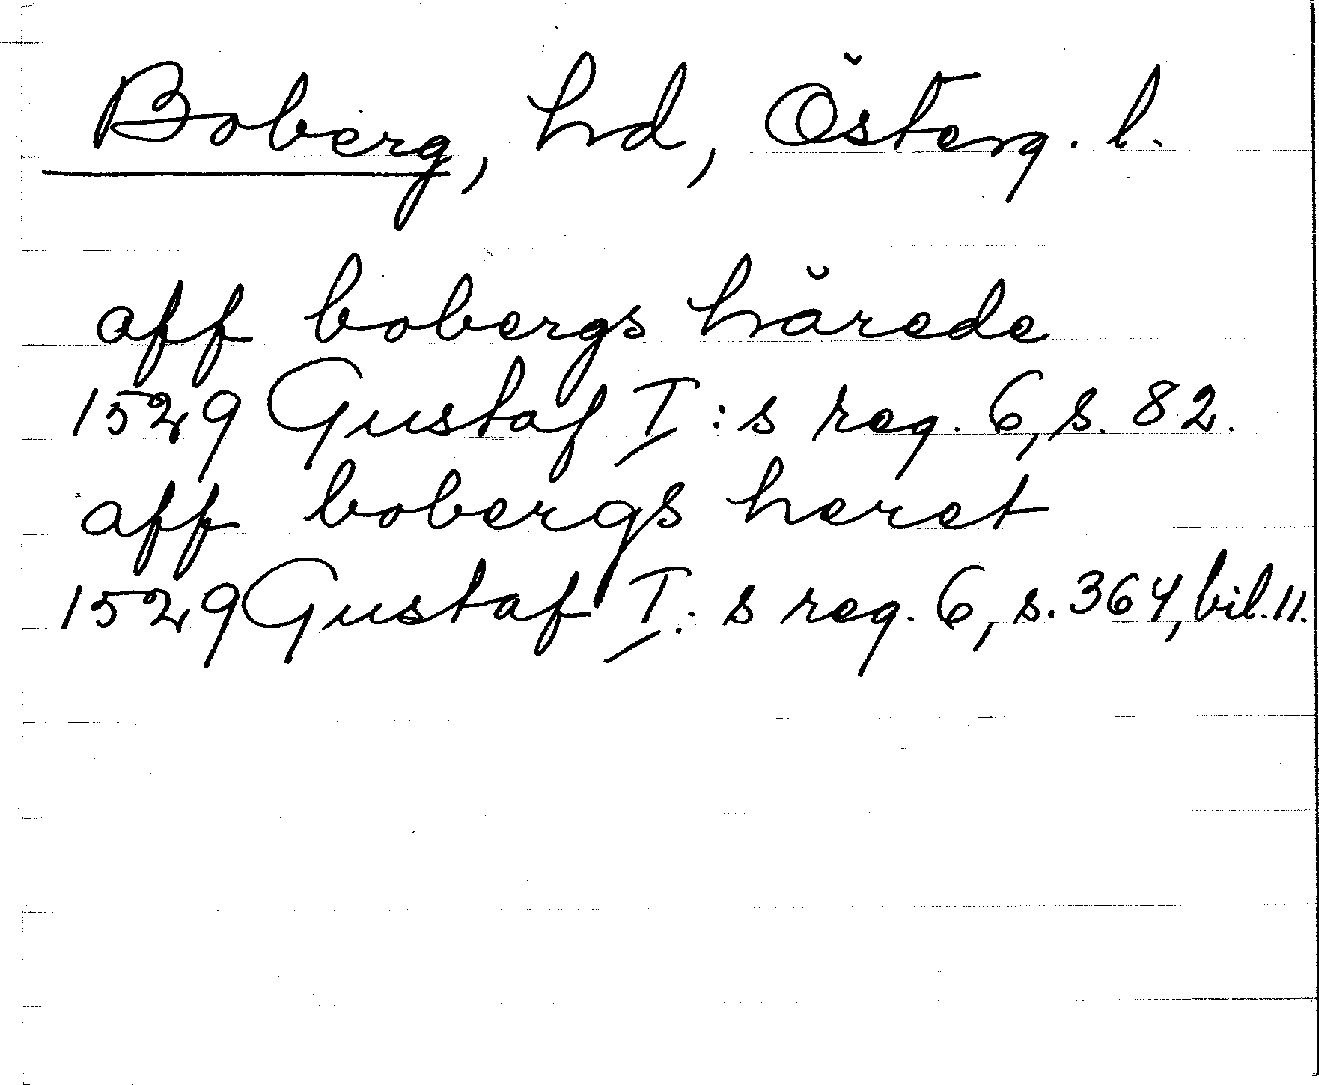 Boberg, hd, Österg. l.
aff bobergs härede
1529 Gustaf I:s reg. 6, s. 82.
aff bobergs heret
1529 Gustaf I:s reg. 6, s. 364, bil. 11.